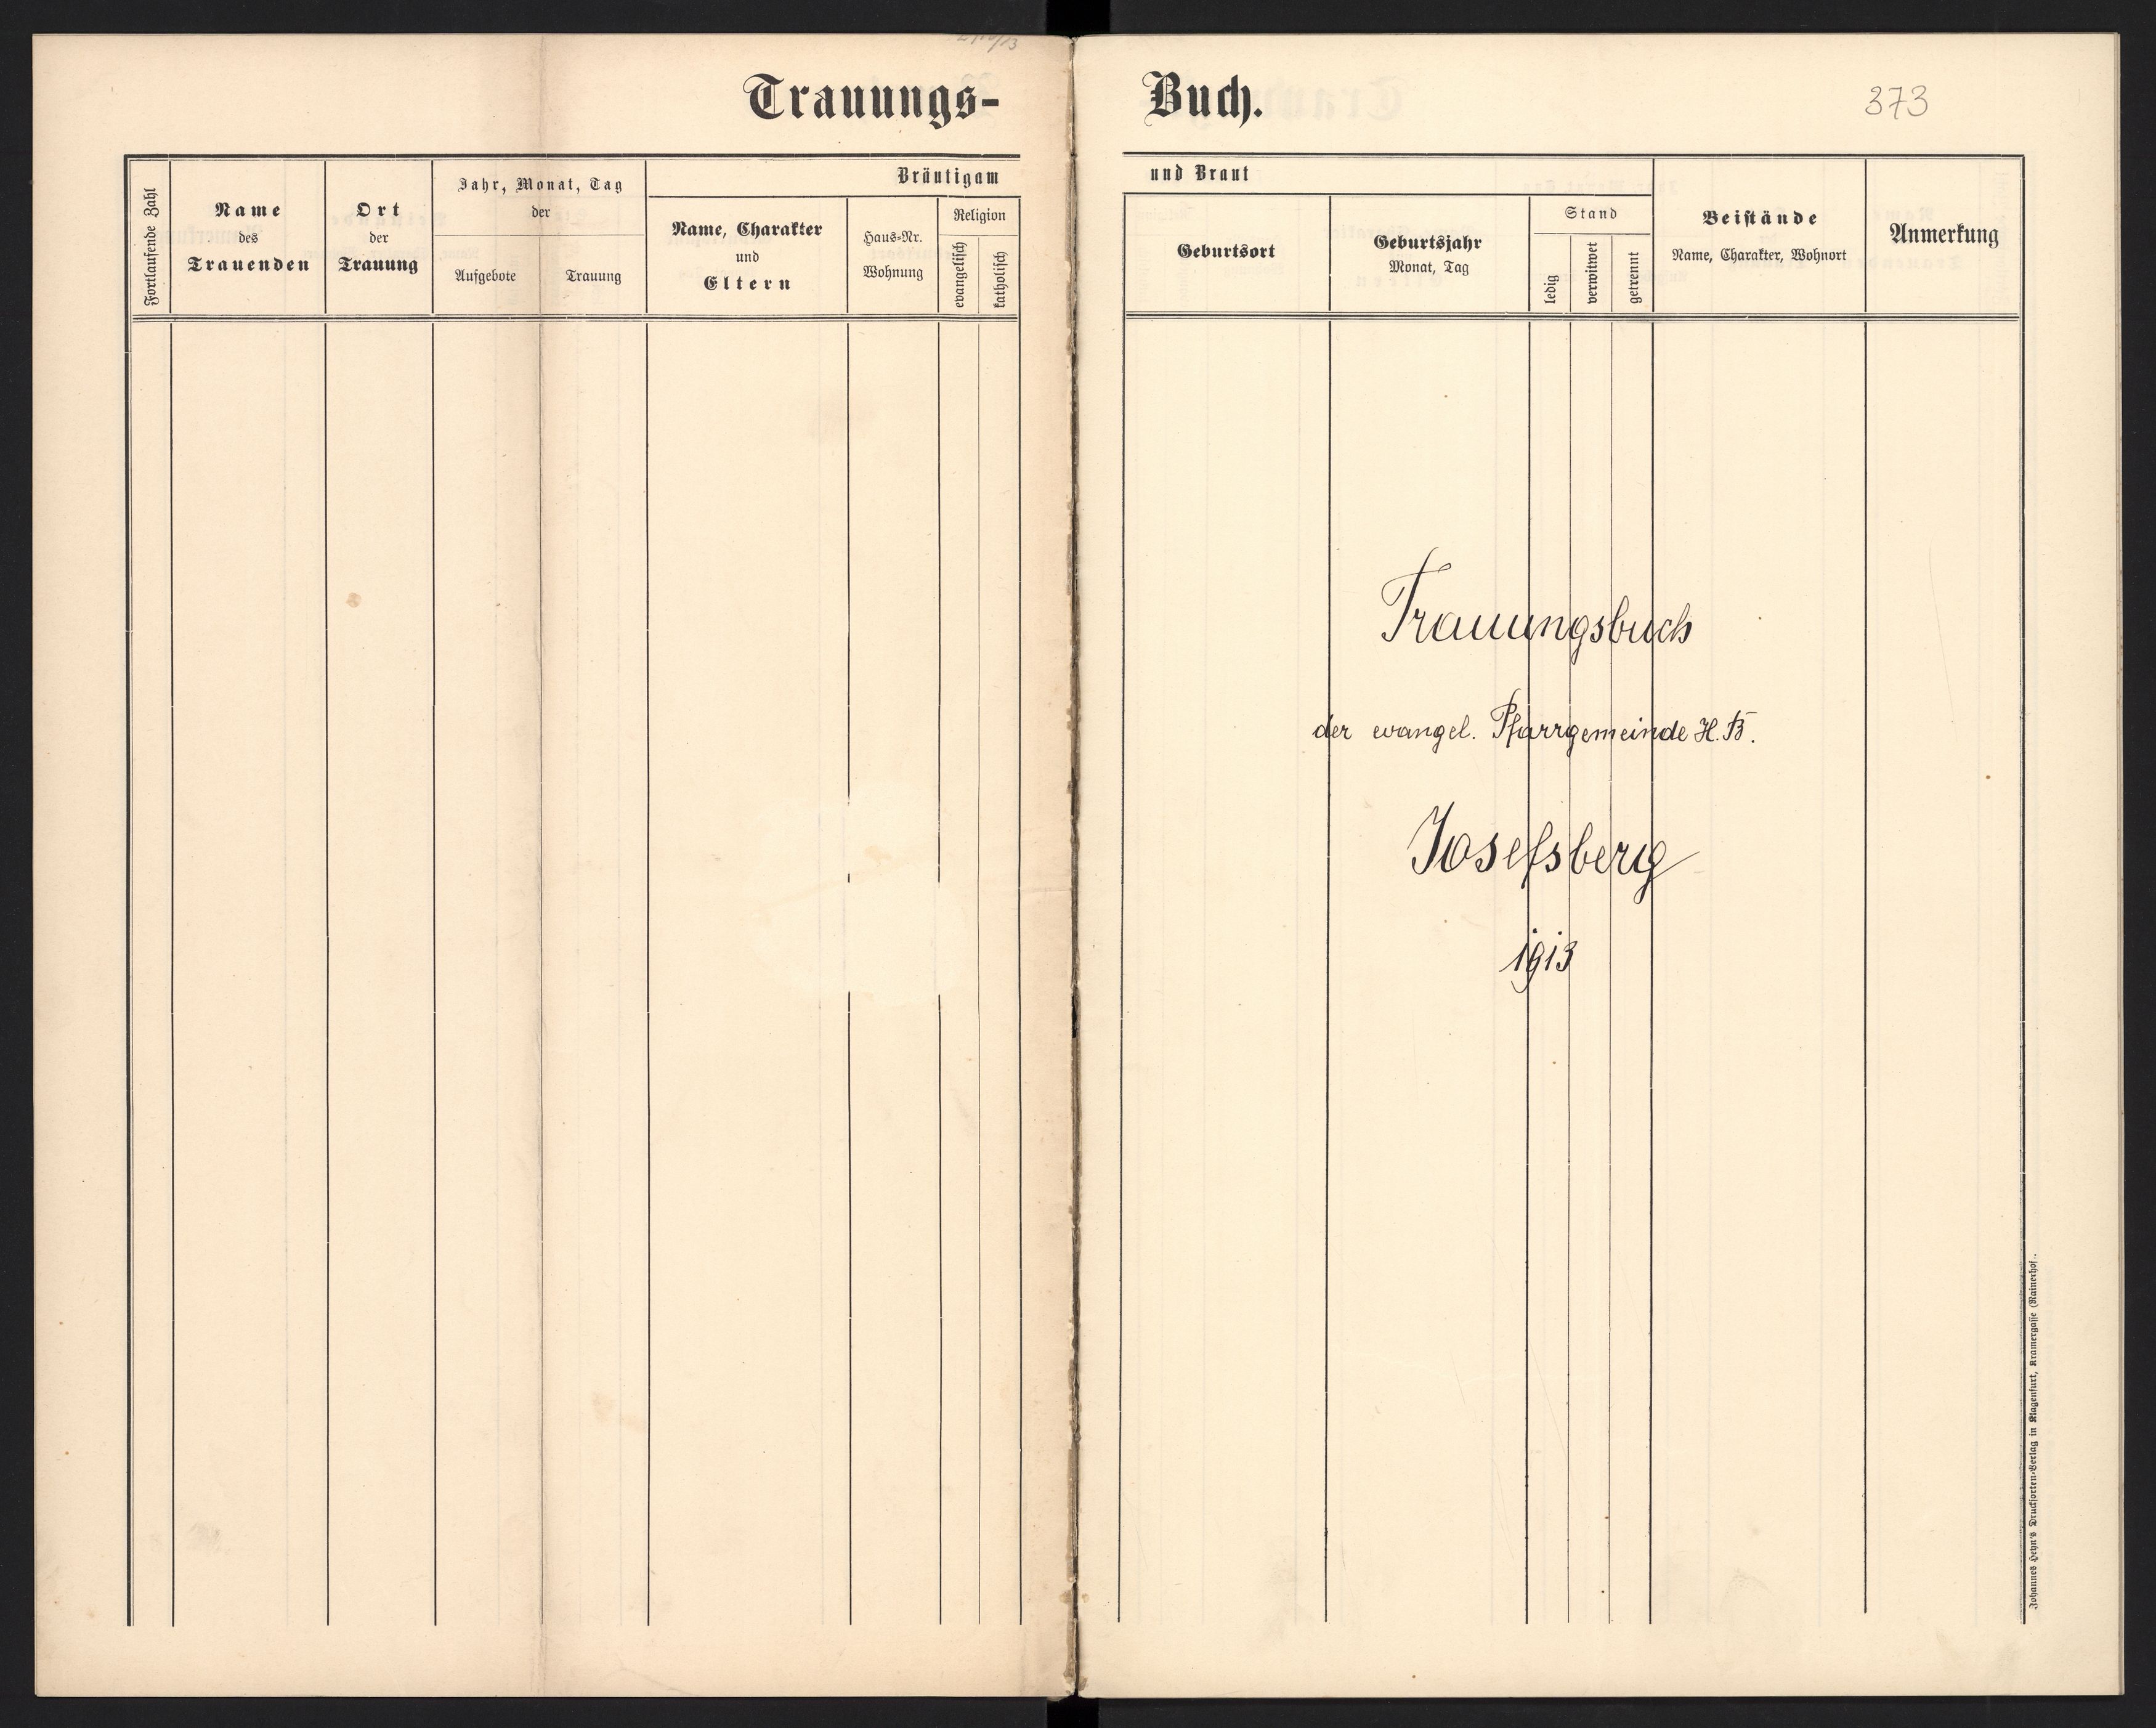 Trauungs-
Buch.
373
Fortlaufende Zahl
Name
des
Trauenden
Ort
der
Trauung
Jahr, Monat, Tag
der
Aufgebote
Trauung
Bräutigam
Name, Charakter
und
Eltern
Haus-Nr.
Wohnung
Religion
evangelisch
katholisch
und Braut
Geburtsort
Geburtsjahr
Monat, Tag
Stand
ledig
verwitwet
getrennt
Beistände
Name, Charakter, Wohnort
Anmerkung
Trauungsbuch
der evangel. Pfarrgemeinde H. B.
Josefsberg
1913
Johannes Heyn's Drucksorten-Verlag in Klagenfurt, Kramergasse (Rainerhof.